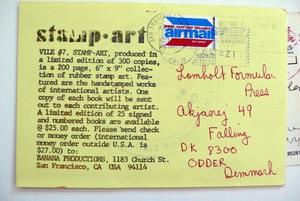 stamp·art
VILE #7, STAMP-ART, produced in
a limited edition of 300 copies,
is a 200 page, 6" x 9" collec-
tion of rubber stamp art. Fea-
tured are the handstamped works
of international artists. One
copy of each book will be sent
out to each contributing artist.
A limited edition of 25 signed
and numbered books are available
@ $25.00 each. Please send check
or money order (international
money order outside U.S.A. is
$27.00) to:
BANANA PRODUCTIONS, 1183 Church St.
San Francisco, CA USA 94114
airmail
21
Lomholt Formular
Press
Akjaerej 49
Falling
DK 8300
ODDER
Denmark